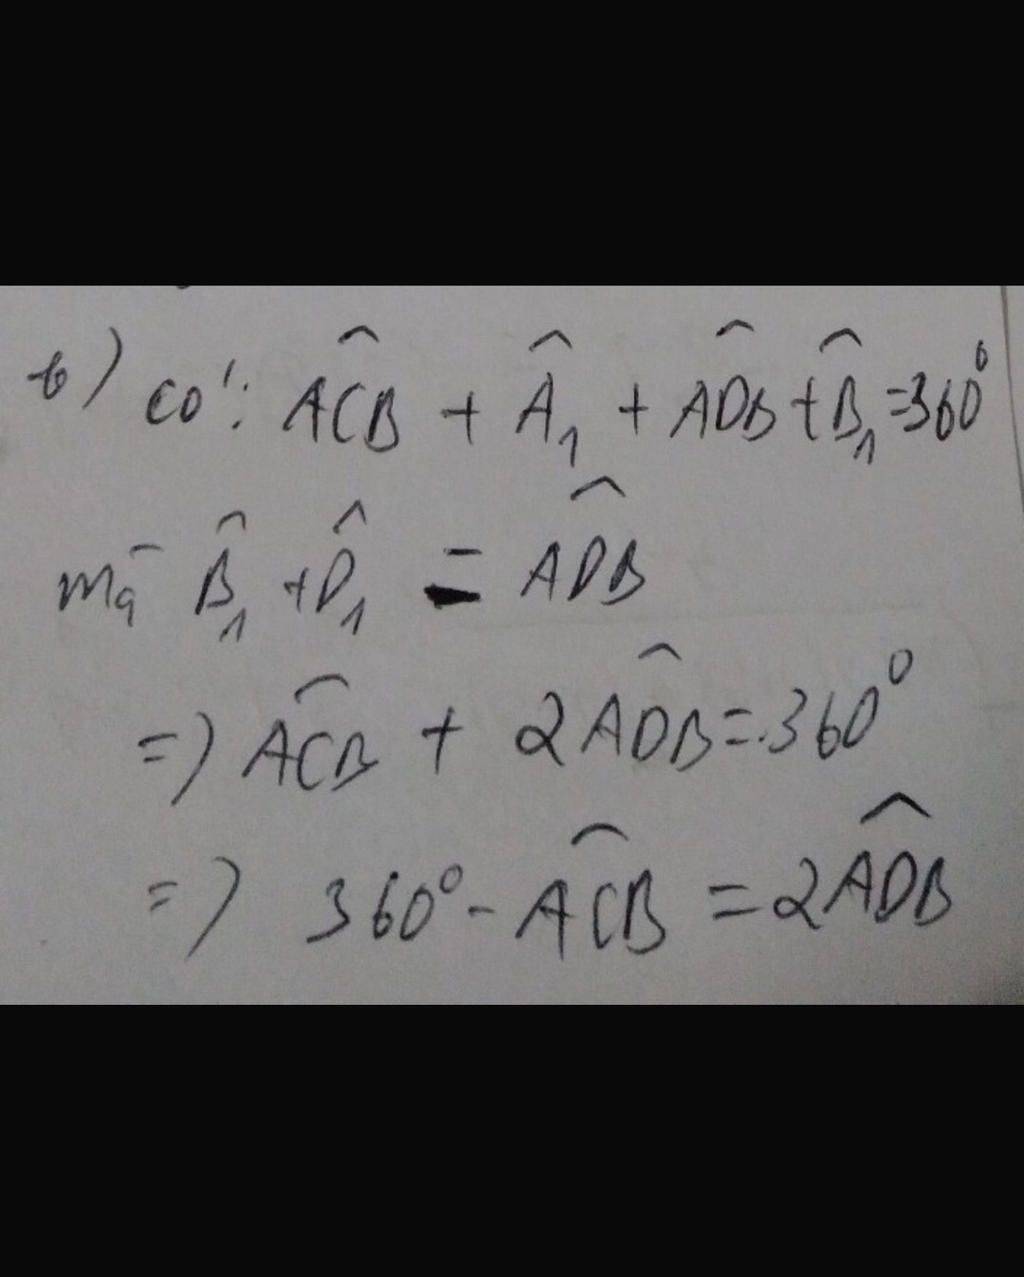 b) có: \widehat{ACB} + \widehat{A}_1 + \widehat{ADB} + \widehat{B}_1 = 360⁰
mà \widehat{B}_1 + \widehat{D}_1 = \widehat{ADB}
=> \widehat{ACB} + 2\widehat{ADB} = 360⁰
=> 360⁰ - \widehat{ACB} = 2\widehat{ADB}